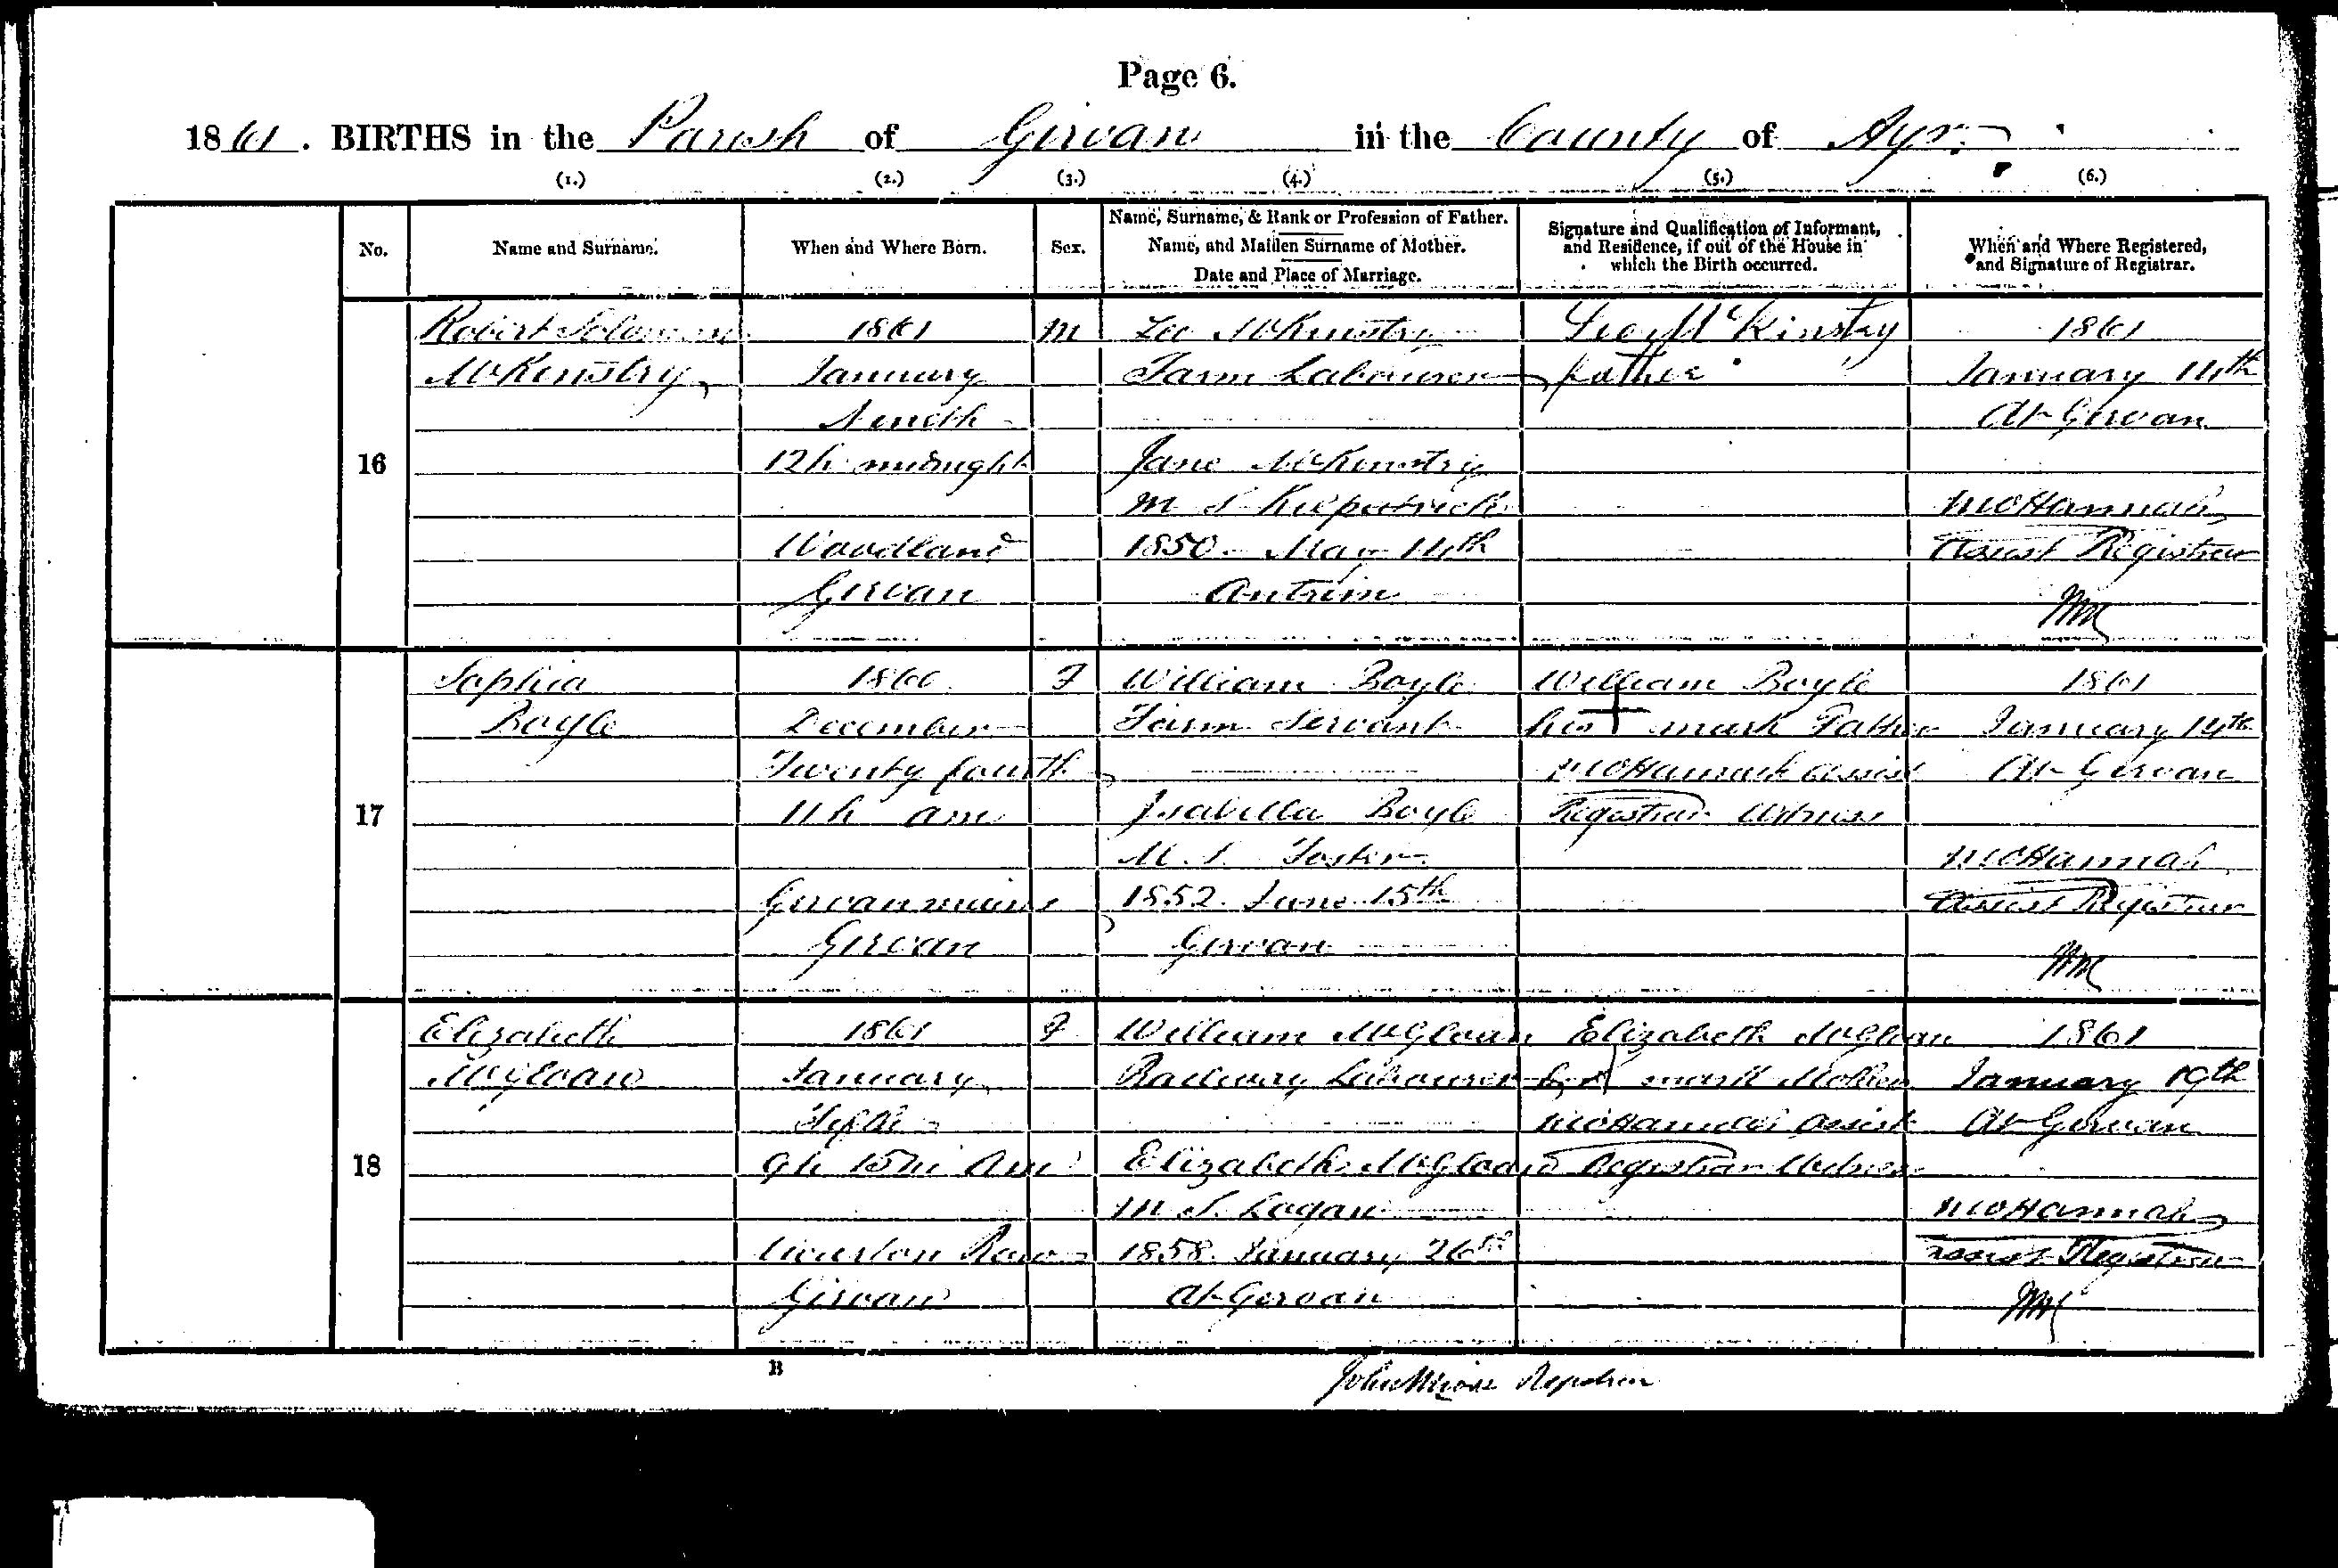 Page 6.
1861. BIRTHS in the Parish of Girvan in the County of Ayr.
(1.) (2.) (3.) (4.) (5.) (6.)
No. Name and Surname. When and Where Born. Sex. Name, Surname, & Rank or Profession of Father. Name, and Maiden Surname of Mother. Date and Place of Marriage. Signature and Qualification of Informant, and Residence, if out of the House in which the Birth occurred. When and Where Registered, and Signature of Registrar.
16
Robert Solomon
McKinstry
1861
January
12h midnight
Woodland
Girvan
M
McKinstry
Farm Labourer
Jane McKinstry
M S Kilpatrick
1850 May 14th
Antrim
McKinstry
father
1861
January 14th
At Girvan
McHannah
Assist Registrar
17
Sophia
Boyle
1860
December
Twenty fourth
11h am
Girvanmains
Girvan
F
William Boyle
Farm Servant
Isabella Boyle
M. S. Foster
1852 June 15th
Girvan
William Boyle
his + mark Father
McHannah Assist
Registrar Witness
1861
January 14th
At Girvan
McHannah
Assist Registrar
18
Elizabeth
McGloan
1861
January
Fifth
9h 15m am
Row
Girvan
F
William McGloan
Railway Labourer
Elizabeth McGloan
M S. Logan
1858 January 26th
At Girvan
Elizabeth McGloan
her x mark Mother
McHannah Assist
Registrar Witness
1861
January 19th
At Girvan
McHannah
Assist Registrar
B
John Registrar